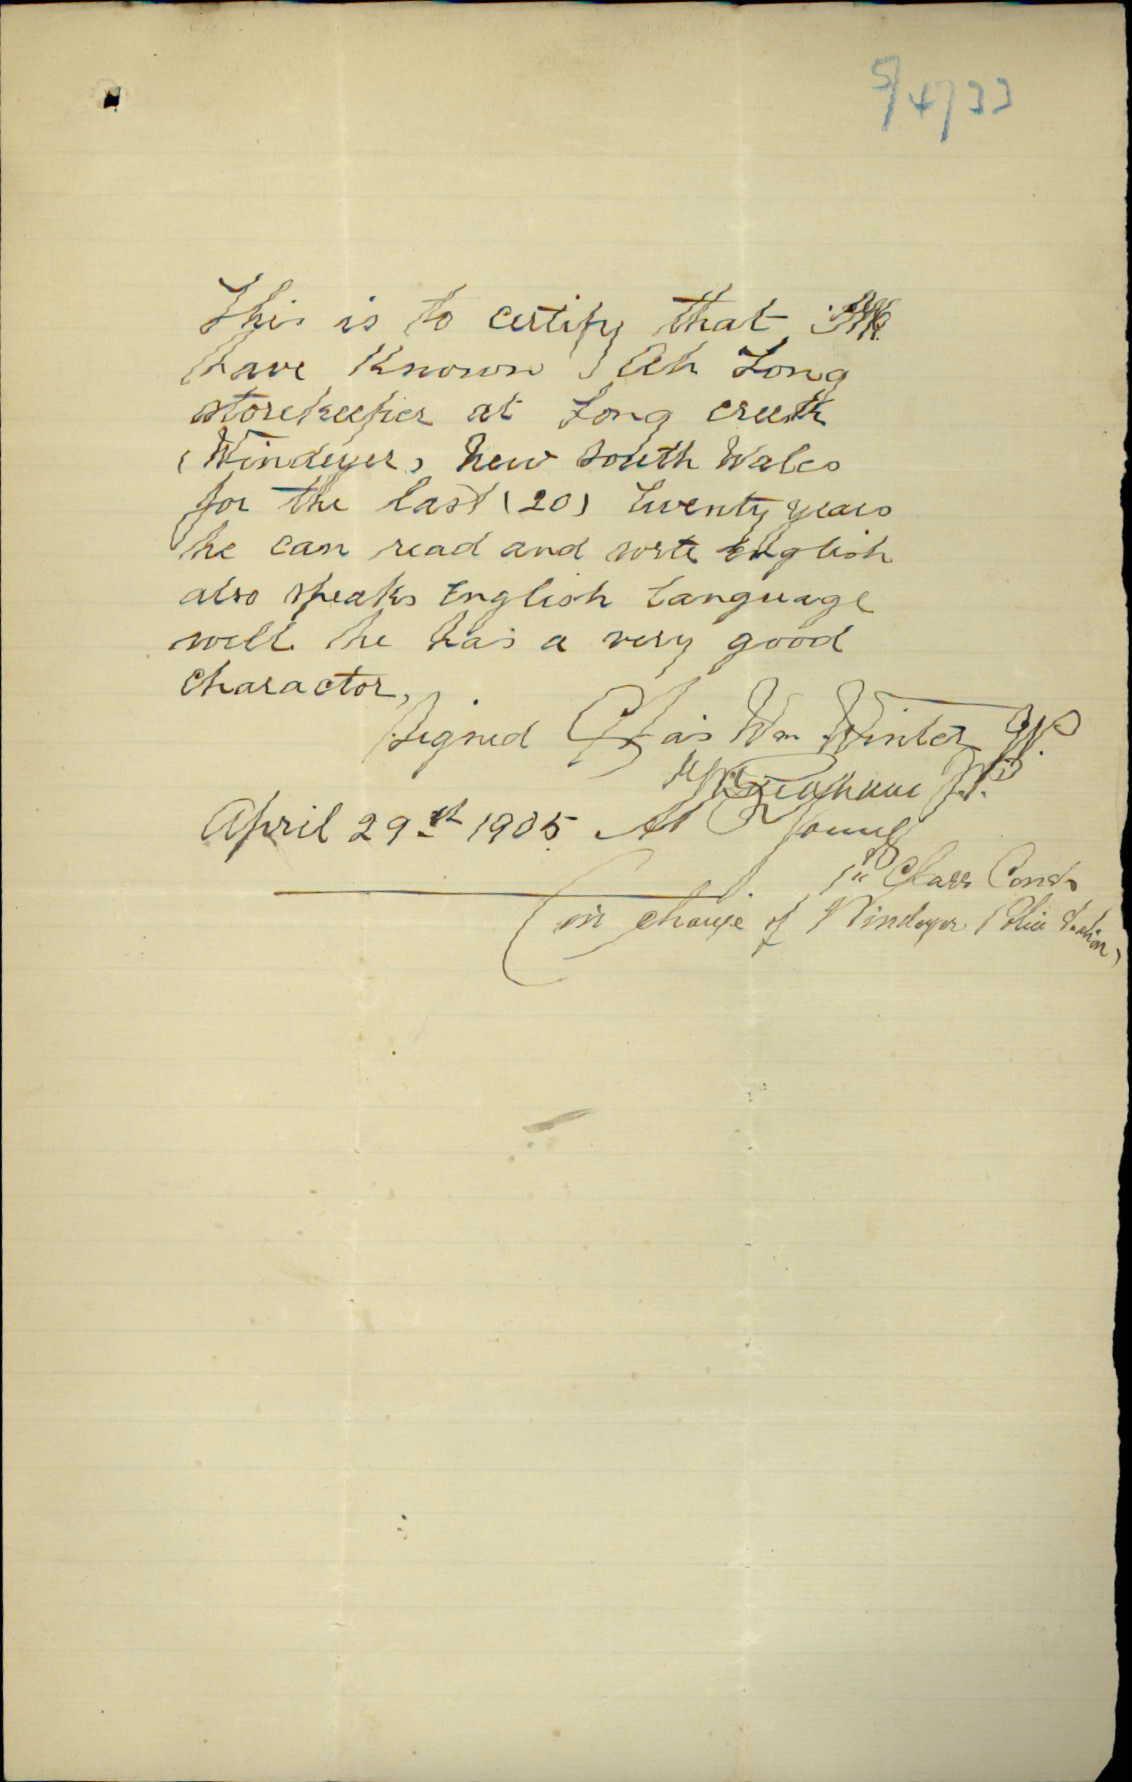 5/4733
This is to certify that We
have Known Ah Long
storekeeper at Long creek
(Windeyer) New South Wales
for the last (20) twenty years
he can read and write English
also speaks English Language
well he has a very good
charactor,
Signed Chas Wm Winter JP
J.P.
April 29th 1905
1st Class Const
(in charge of Windeyer Police Station)